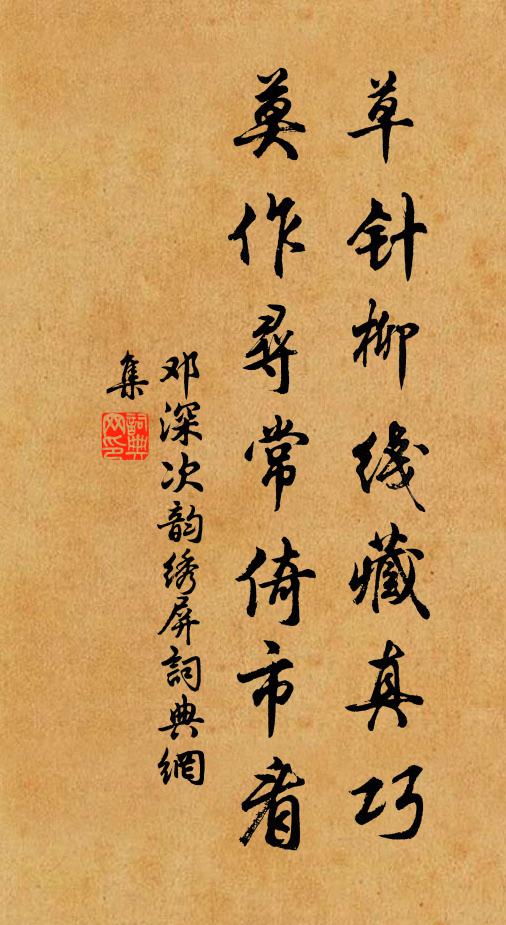 草针柳线藏真巧
莫作寻常倚市看
邓深次韵绣屏詞典網
集
詞典网印